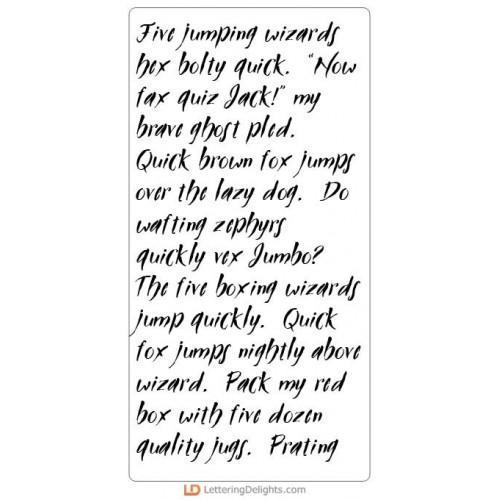 Five jumping wizards
hex bolty quick. "Now
fax quiz Jack!" my
brave ghost pled.
Quick brown fox jumps
over the lazy dog. Do
wafting zephyrs
quickly vex Jumbo?
The five boxing wizards
jump quickly. Quick
fox jumps nightly above
wizard. Pack my red
box with five dozen
quality jugs. Prating
LD LetteringDelights.com